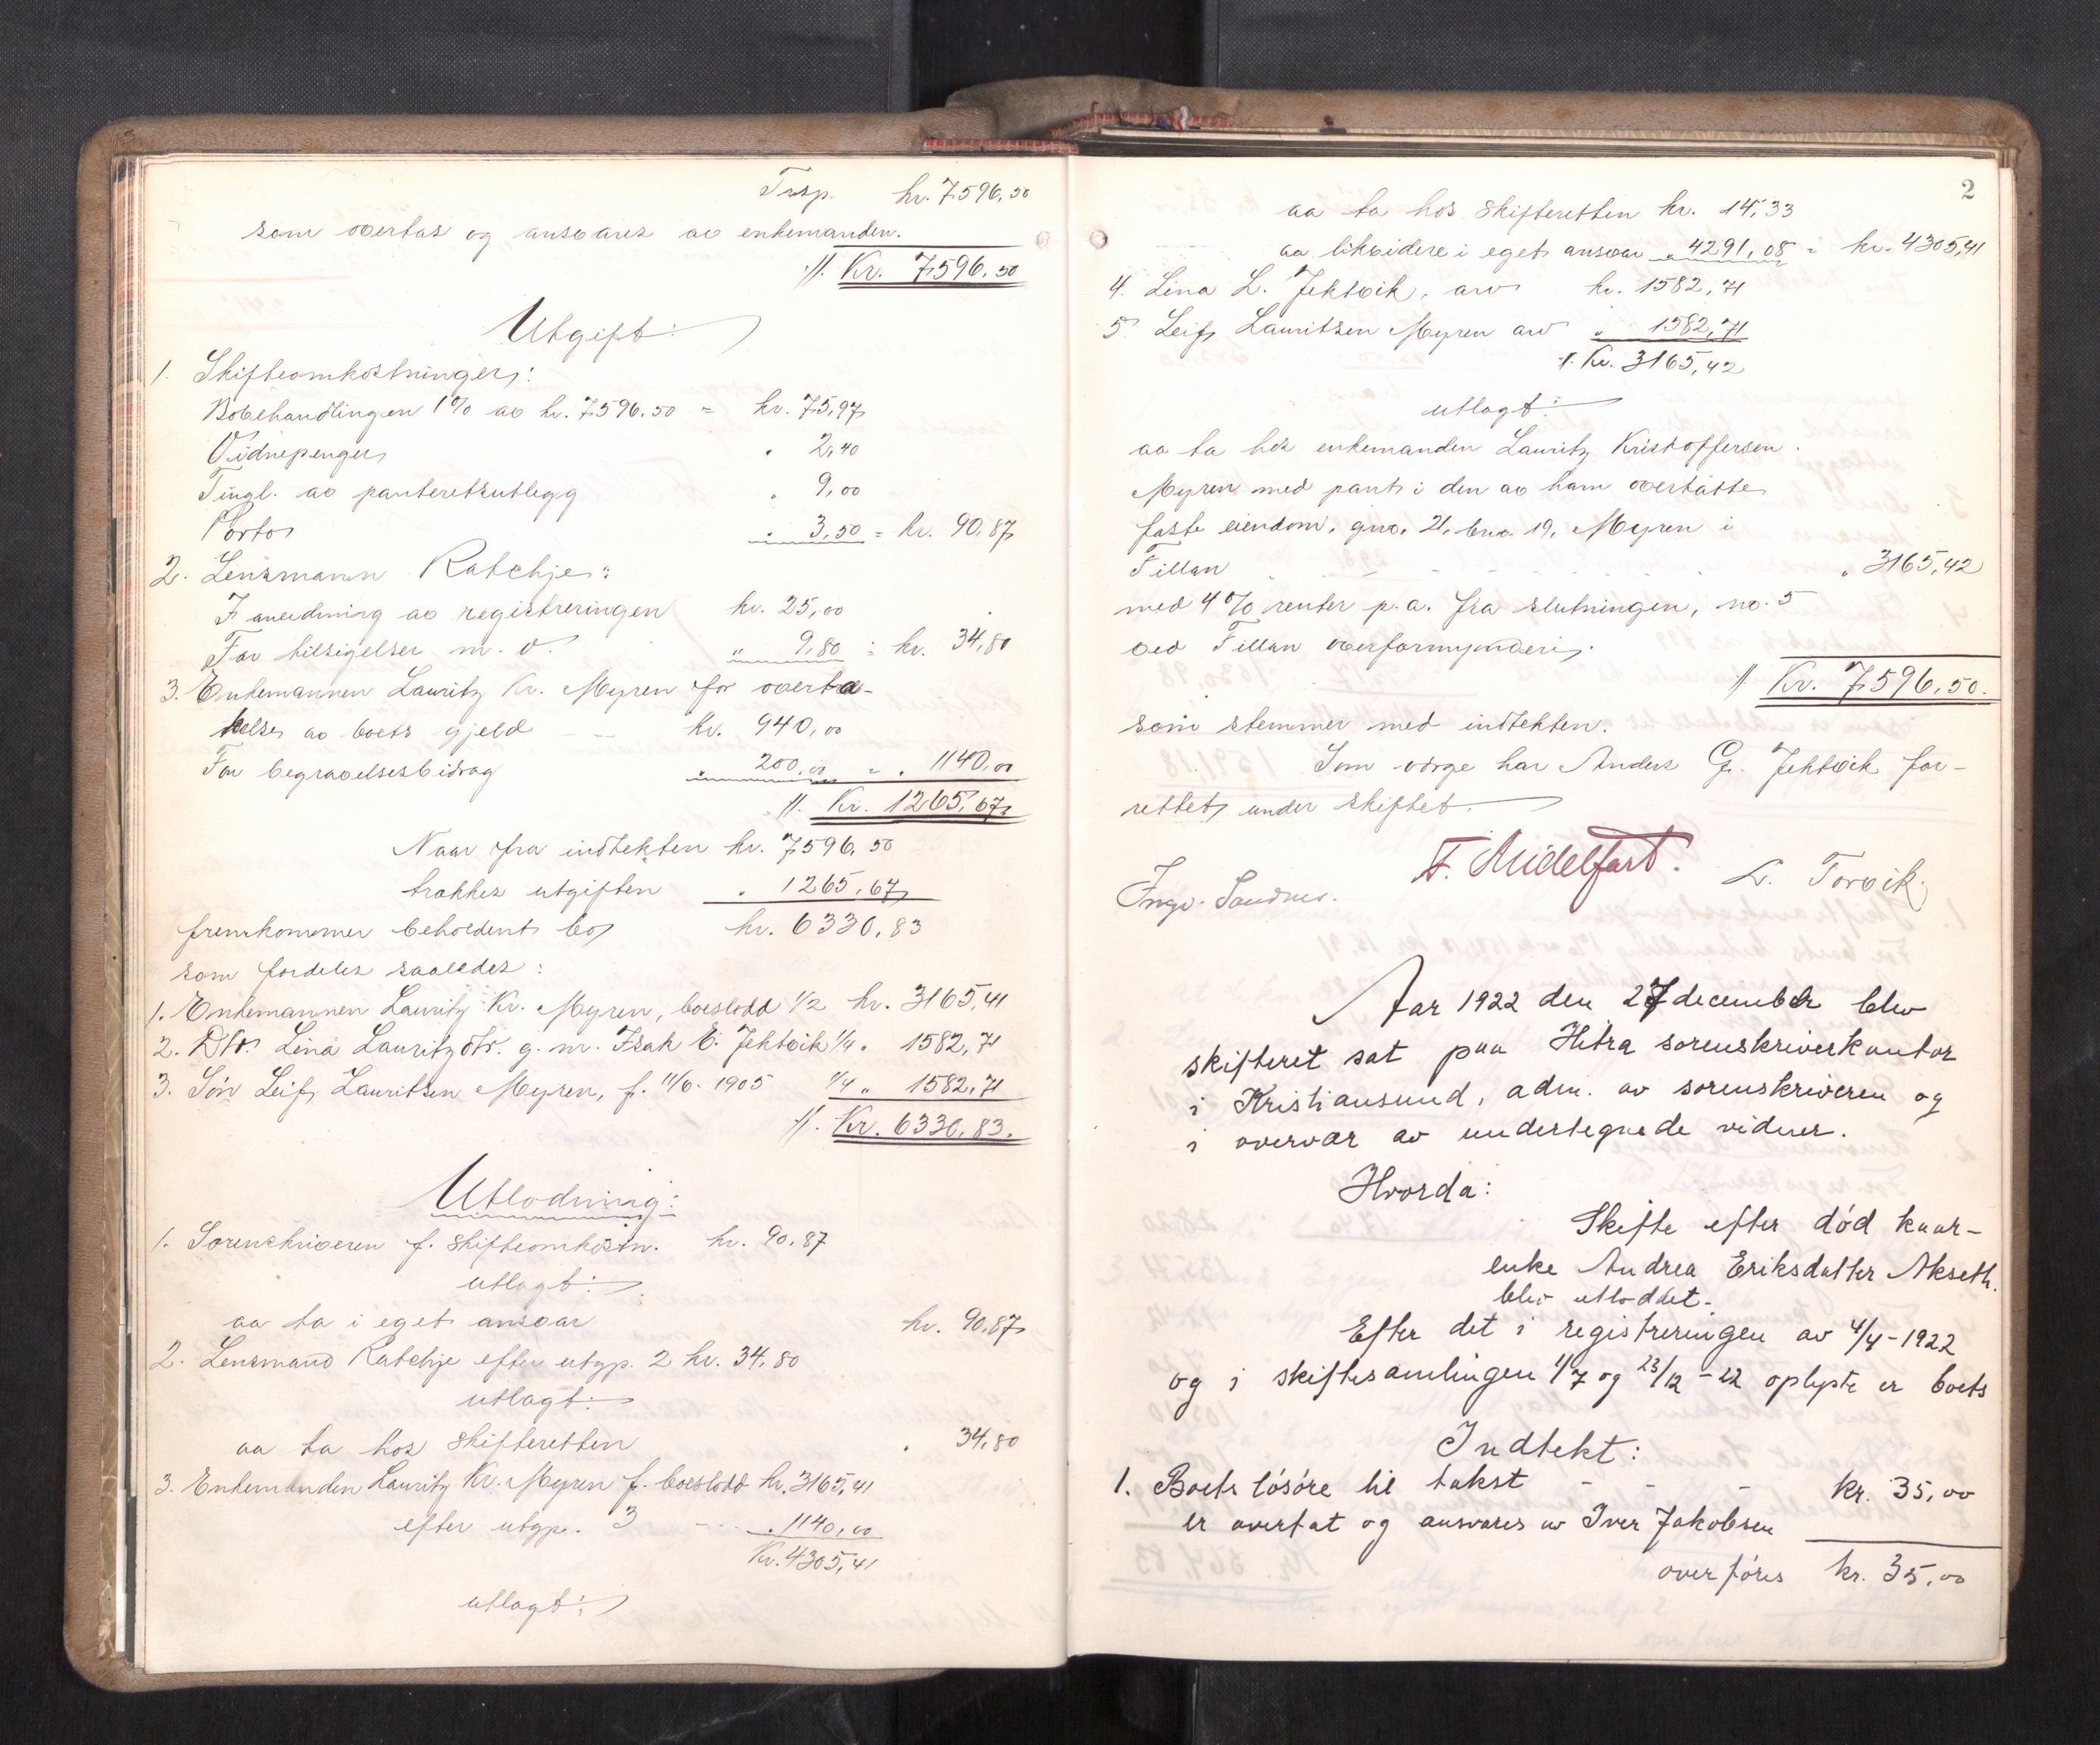 Trsp. kr. 7596,50
som overtas og ansvares av enkemanden.
//. Kr. 7596,50
Utgift:
1. Skifteomkostninger:
Bobehandlingen 1% av kr. 7596.50 = kr. 75,97
Vidnepenger " 2,40
Tingl. av panteretsutlegg " 9,00
Porto " 3,50 = kr. 90,87
2. Lensmann Ratchje:
F anledning av registreringen kr. 25,00
For tilsigelser m. v. " 9,80 = kr. 34,80
3. Enkemannen Lauritz Kr. Myren for overta-
kelse av boets gjeld - - kr. 940,00
For begravelsesbidrag " 200,00 = " 1140,00
//. Kr. 1265,67
Naar fra indtekten kr. 7596,50
trækkes utgiften " 1265,67
fremkommer beholdent bo kr. 6330,83
som fordeles saaledes:
1. Enkemannen Lauritz Kr. Myren, boeslodd 1/2 kr. 3165,41
2. Dtr. Lina Lauritzdtr. g. m. Isak E. Jektvik 1/4 " 1582,71
3. Søn Leif Lauritsen Myren, f. 11/6-1905 1/4 " 1582,71
//. Kr. 6330,83.
Utlodning:
1. Sorenskriveren f. skifteomkostn. kr. 90,87
utlagt:
aa ta i eget ansvar kr. 90,87
2. Lensmand Ratchje efter utgp. 2 kr. 34,80
utlagt:
aa ta hos skifteretten " 34,80
3. Enkemanden Lauritz Kr. Myren f. boeslodd kr. 3165,41
efter utgp. 3 - - " 1140,00
Kr. 4305,41
utlagt:
2
aa ta hos skifteretten kr. 14,33
aa likvidere i eget ansvar " 4291,08 = kr. 4305,41
4. Lina L. Jektvik, arv kr. 1582,71
5 Leif Lauritsen Myren arv " 1582,71
//. Kr. 3165,42
utlagt:
aa ta hos enkemanden Lauritz Kristoffersen
Myren med pant i den av ham overtatte
faste eiendom, gno. 21, bno. 19, Myren i
Fillan - - - - - " 3165,42
med 4% renter p.a. fra slutningen, no. 5
ved Fillan overformynderi.
// Kr. 7596,50.
som stemmer med indtekten.
Som værge har Anders G. Jektvik for-
rettet under skiftet.
F. Midelfart. L. Torvik.
Ingv. Sandnes.
Aar 1922 den 27 december blev
skifteret sat paa Hitra sorenskriverkontor
i Kristiansund, adm. av sorenskriveren og
i overvær av undertegnede vidner.
Hvorda:
Skifte efter død kaar-
enke Andrea Eriksdatter Akseth.
blev utloddet.
Efter det i registreringen av 4/4-1922
og i skiftesamlingen 1/7 og 23/12-22 oplyste er boets
Indtekt:
1. Boets løsøre til takst - - - kr. 35,00
er overtat og ansvares av Iver Jakobsen
overføres kr. 35,00